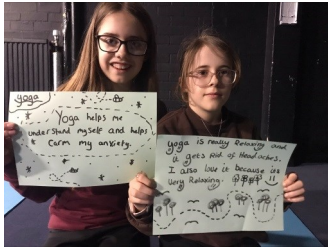 yoga
Yoga helps me
understand myself and helps
Carm my anxiety.
yoga is really Relaxing and
it gets Rid of Headaches.
I also love it because its
Very Relaxing.